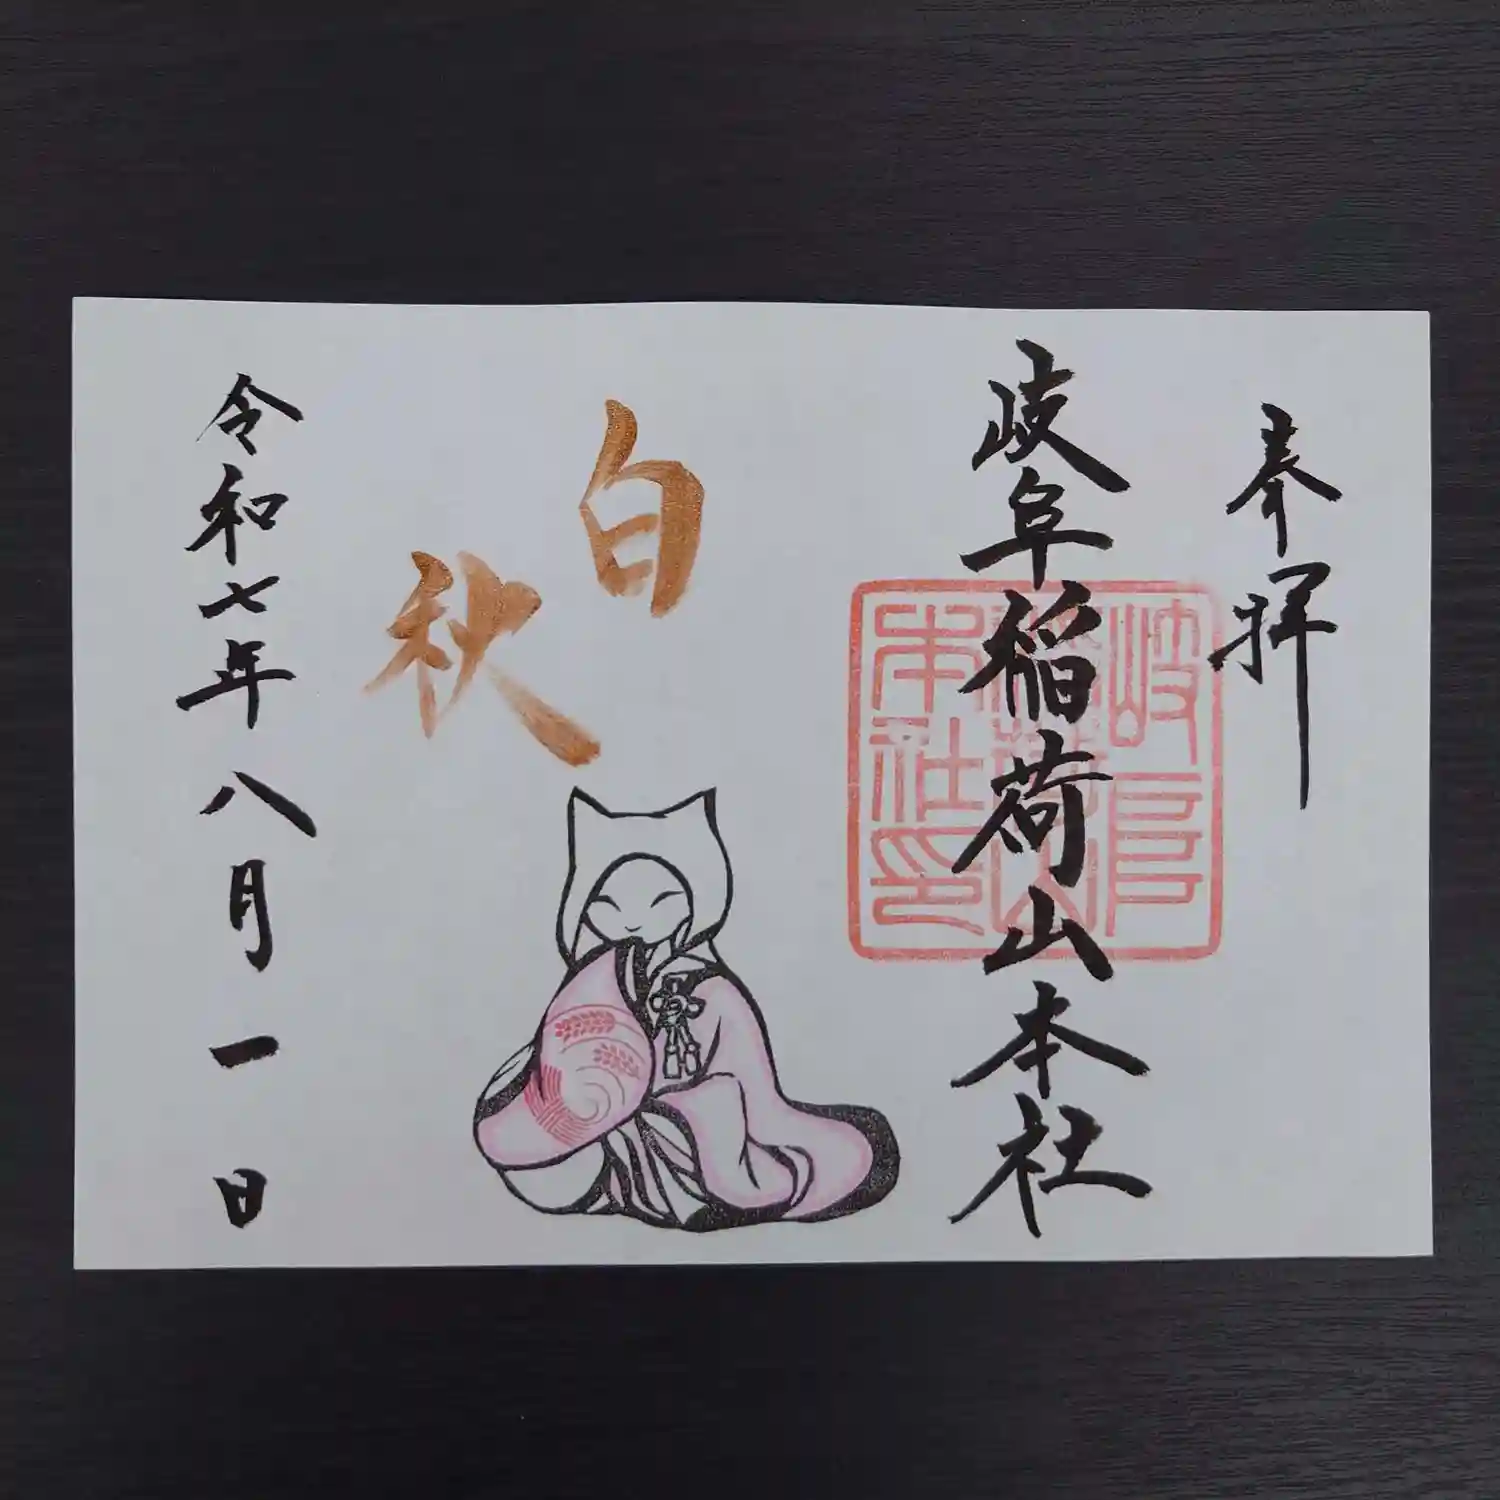 奉拝
岐阜稲荷山本社
岐阜
稲荷山
本社印
白
秋
令和七年八月一日